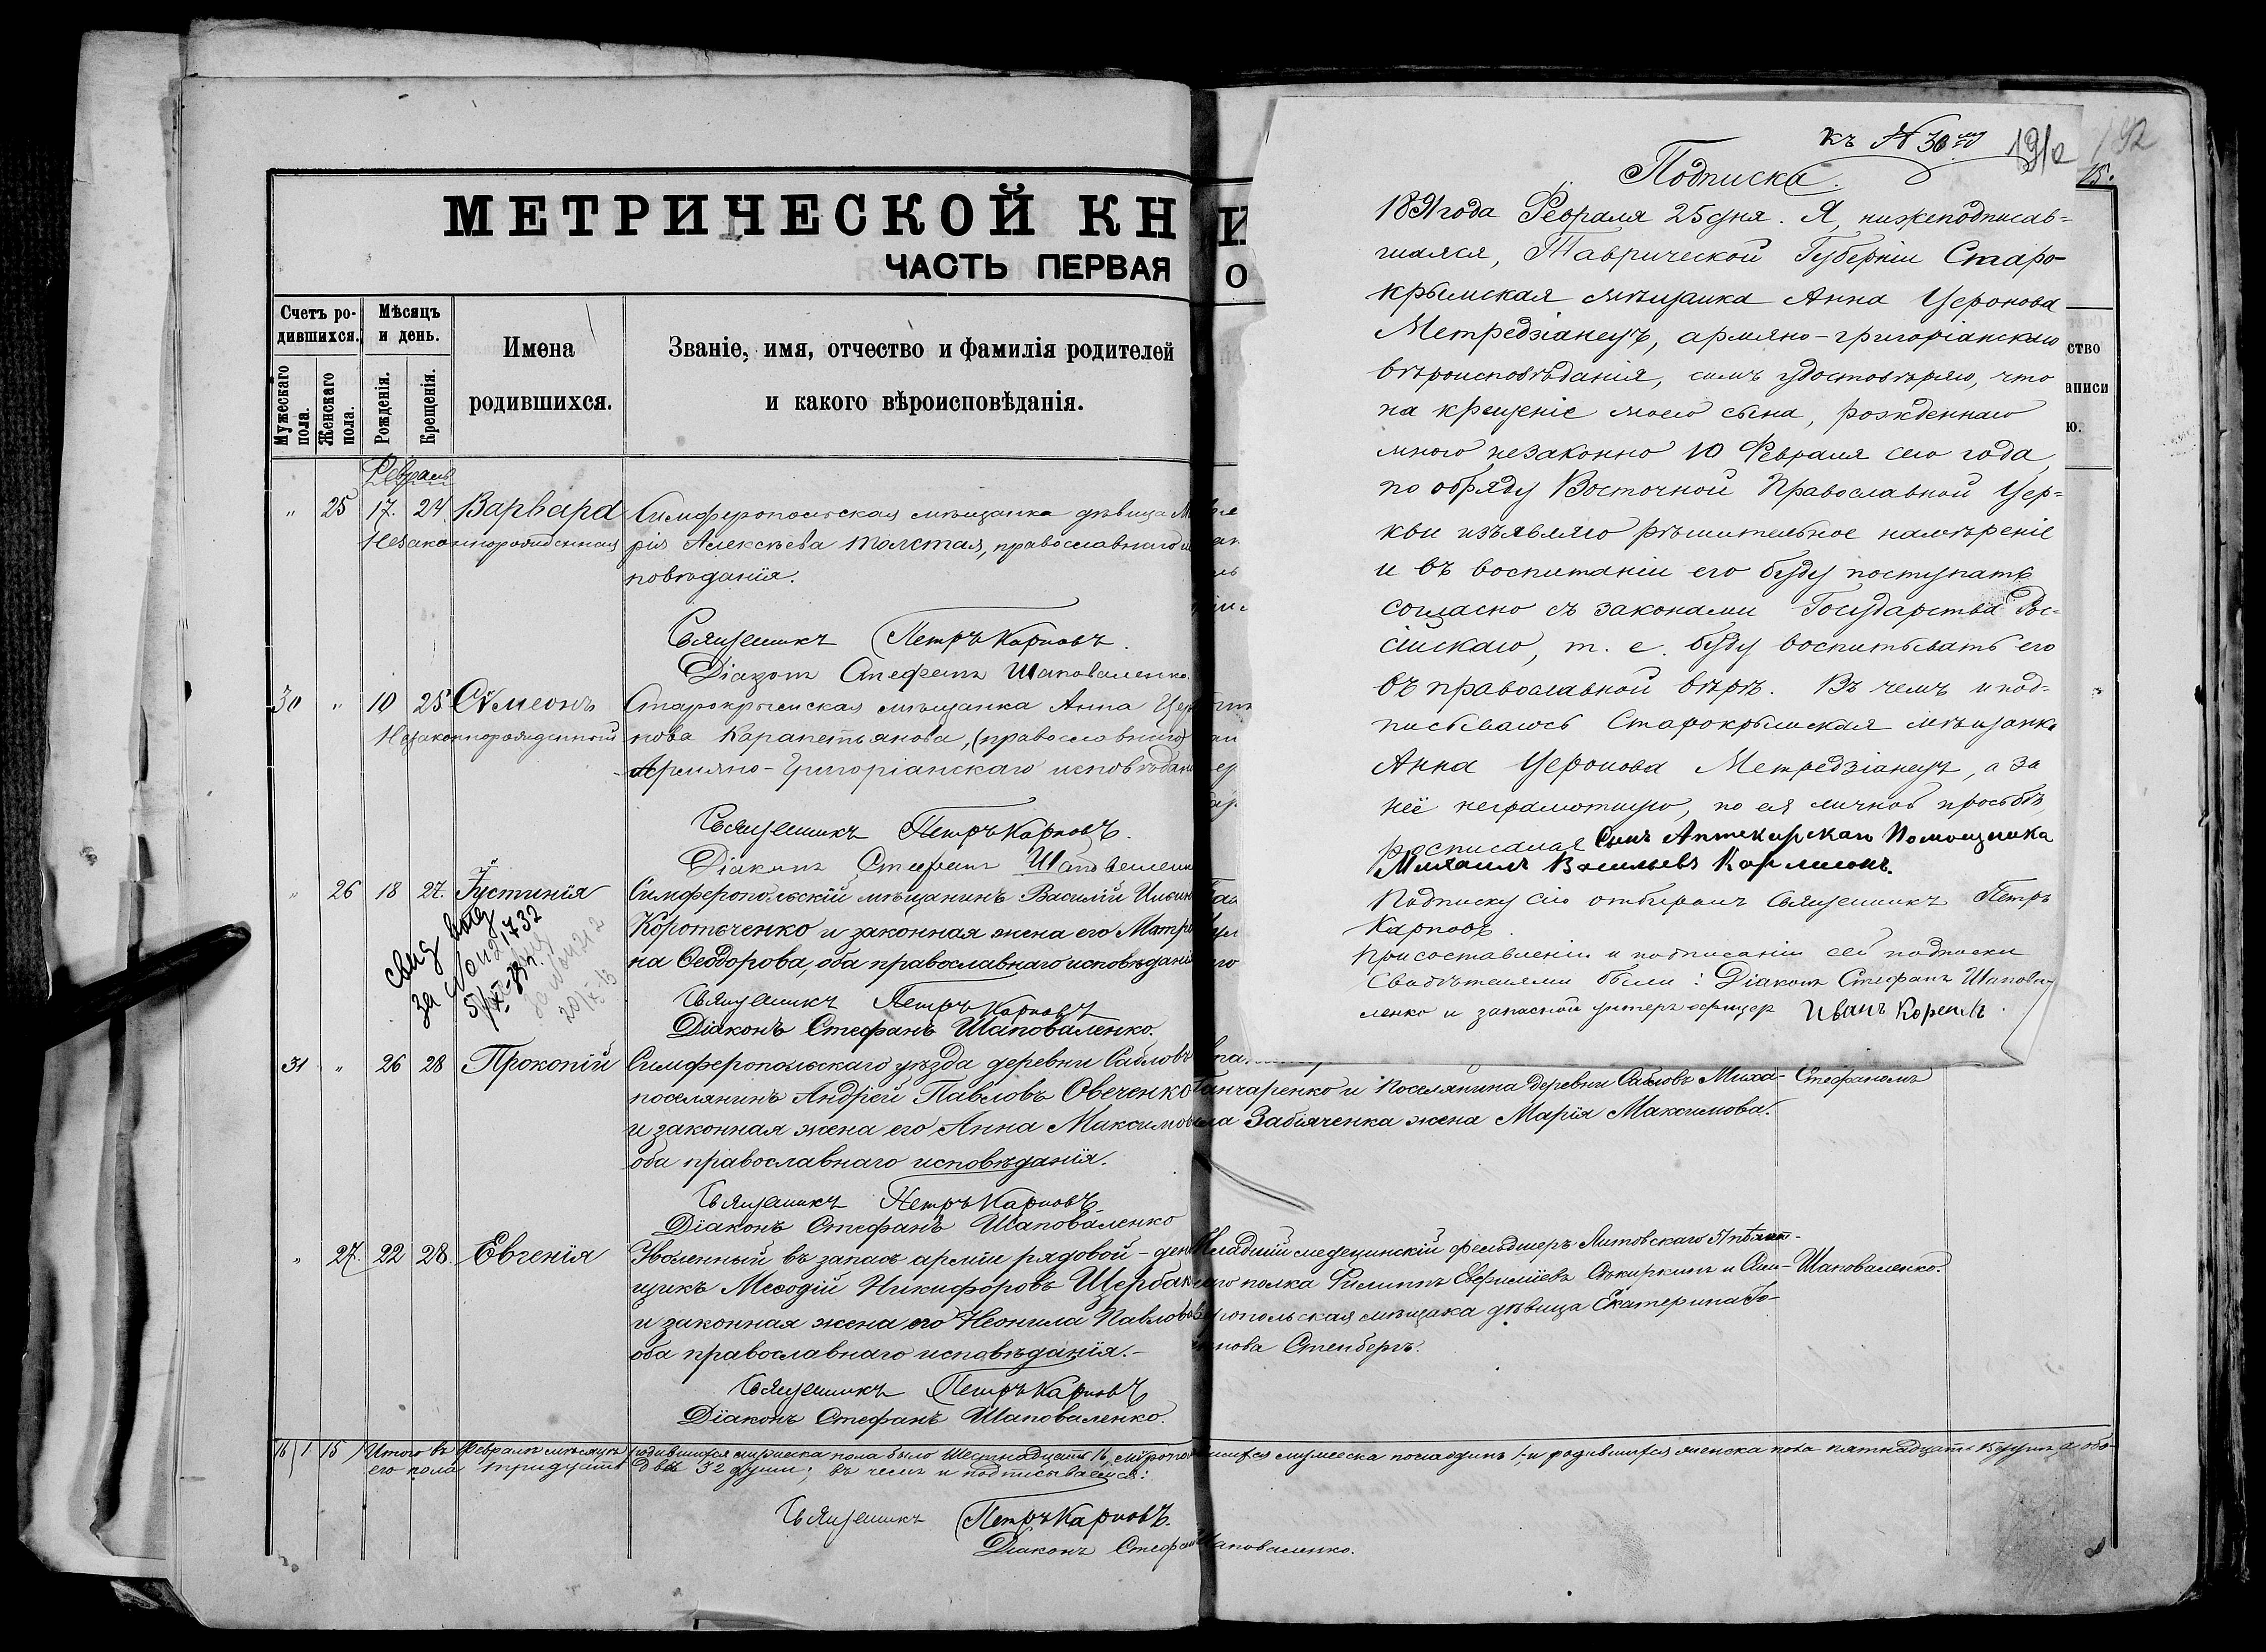 МЕТРИЧЕСКОЙ КН
ЧАСТЬ ПЕРВАЯ
Счетъ ро-
дившихся.
Мѣсяцъ
и день.
Имена
родившихся.
Званіе, имя, отчество и фамилія родителей
и какого вѣроисповѣданія.
Мужескаго
пола.
Женскаго
пола.
Рожденія.
Крещенія.
Февраль
" 25 17. 24 Варвара Симферопольская мѣщанка дѣвица Ма
Незаконнорожденная рія Алексѣева Толстая, православнаго
повѣданія.
Священникъ Петръ Карповъ.
Діаконъ Стефанъ Шаповаленко.
30 " 10 25 Сѵмеонъ Старокрымская мѣщанка Анна Церо
Незаконнорожденный нова Карапетьянова, (православнаго)
Армяно-Григоріанскаго исповѣдані
Священникъ Петръ Карповъ.
Діаконъ Стефанъ Шаповаленк
" 26 18 27. Іустинія Симферопольскій мѣщанинъ Василій Ильин
Коротченко и законная жена его Матро
на Ѳеодорова, оба православнаго исповѣдані
свид выд
за № 1732
Священникъ Петръ Карповъ
Діаконъ Стефанъ Шаповаленко.
31 " 26 28 Прокопій Симферопольскаго уѣзда деревни Сабловъ
поселянинъ Андрей Павловъ Овеченко Ганчаренко и поселянина деревни Сабловъ Миха- Стефаномъ
и законная жена его Анна Максимов ила Забіяченка жена Марія Максимова.
оба православнаго исповѣданія.
Священникъ Петръ Карповъ
Діаконъ Стефанъ Шаповаленко
" 27. 22 28. Евгенія Уволенный въ запасъ арміи рядовой - ден Младшій медецинскій фельдшеръ Литовскаго
щикъ Меѳодій Никифоровъ Щербак полка Филиппъ Сѣкиркинъ и Сим- Шаповаленко.
и законная жена его Неонила Павлова феропольская мѣщанка дѣвица Екатерина
оба православнаго исповѣданія. - нова Стенбергъ.
Священникъ Петръ Карповъ
Діаконъ Стефанъ Шаповаленко.
16 1 15 Итого въ Февралѣ мѣсяцѣ родившихся мужеска пола было Шестнадцать 16, мужеска пола одинъ 1, и родившихся женска пола пятнадцать 15 душъ, а обо-
его пола тридцать двѣ 32 души; въ чемъ и подписываемся:
Священникъ Петръ Карповъ.
Діаконъ Стефанъ Шаповаленко.
къ № 30му
191а
192
15.
Подписка.
1891 года Февраля 25 дня. Я, нижеподписав-
шаяся, Таврической Губерніи Старо-
крымская мѣщанка Анна Церонова
Метредзіанецъ, армяно-григоріанскаго
вѣроисповѣданія, симъ удостовѣряю, что
на крещеніе моего сына, рожденнаго
мною незаконно 10 Февраля сего года,
по обряду Восточной Православной Цер-
кви изъявляю рѣшительное намѣреніе
и въ воспитаніи его буду поступать
согласно съ законами Государства Рос-
сійскаго, т. е. буду воспитывать его
въ православной вѣрѣ. Въ чемъ и под-
писываюсь Старокрымская мѣщанка
Анна Церонова Метредзіанецъ, а за
неё неграмотную, по ея личной просьбѣ,
росписался Сынъ Аптекарскаго Помощника
Михаилъ Васильевъ
Подписку сію отбиралъ Священникъ Петръ
Карповъ.
При составленіи и подписаніи сей подписки
Свидѣтелями были: Діаконъ Стефанъ Шапова-
ленко и запасной унтеръ офицеръ Иванъ
ство
аписи
ю.